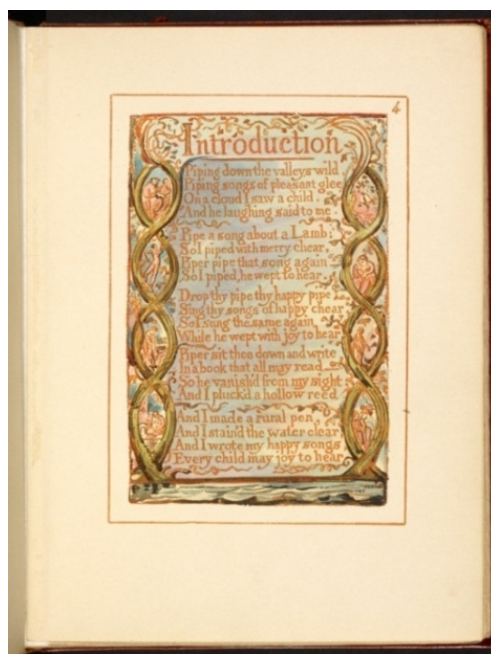 4
Introduction
Piping down the valleys wild
Piping songs of pleasant glee
On a cloud I saw a child.
And he laughing said to me.
Pipe a song about a Lamb:
So I piped with merry chear,
Piper pipe that song again
So I piped, he wept to hear.
Drop thy pipe thy happy pipe
Sing thy songs of happy chear
So I sung the same again
While he wept with joy to hear
Piper sit thee down and write
In a book that all may read
So he vanish'd from my sight
And I pluck'd a hollow reed
And I made a rural pen,
And I stain'd the water clear,
And I wrote my happy songs
Every child may joy to hear